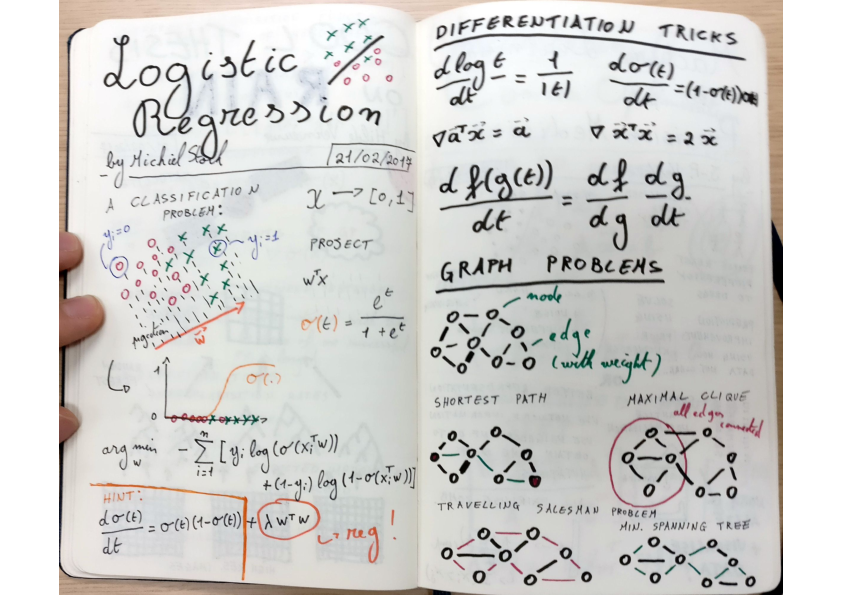 Logistic
Regression
- by Michiel Stock
21/02/2017
A CLASSIFICATION
PROBLEM:
X → [0,1]
y_i=0
y_i=1
PROJECT
wᵀx
projection
w⃗
σ(t) = e^t / (1 + e^t)
1
σ(.)
0
arg min_w - Σ_{i=1}^{n} [ y_i log(σ(x_iᵀw))
+ (1-y_i) log(1-σ(x_iᵀw))]
HINT:
dσ(t)/dt = σ(t)(1-σ(t)) + λwᵀw
reg!
DIFFERENTIATION TRICKS
d log t / dt = 1/|t|
dσ(t)/dt = (1-σ(t))σ(t)
∇ a⃗ᵀx⃗ = a⃗
∇ x⃗ᵀx⃗ = 2 x⃗
d f(g(t)) / dt = df/dg dg/dt
GRAPH PROBLEMS
node
edge
(with weight)
SHORTEST PATH
MAXIMAL CLIQUE
all edges
connected
TRAVELLING SALESMAN PROBLEM
MIN. SPANNING TREE